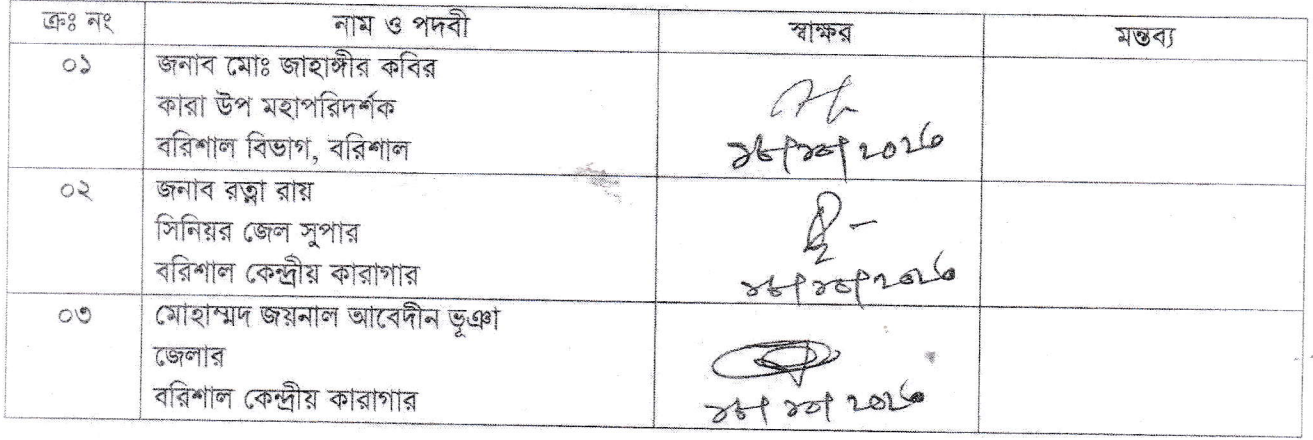 ক্রঃ নং নাম ও পদবী স্বাক্ষর মন্তব্য
০১ জনাব মোঃ জাহাঙ্গীর কবির
কারা উপ মহাপরিদর্শক
বরিশাল বিভাগ, বরিশাল
০২ জনাব রত্না রায়
সিনিয়র জেল সুপার
বরিশাল কেন্দ্রীয় কারাগার
০৩ মোহাম্মদ জয়নাল আবেদীন ভূঞা
জেলার
বরিশাল কেন্দ্রীয় কারাগার